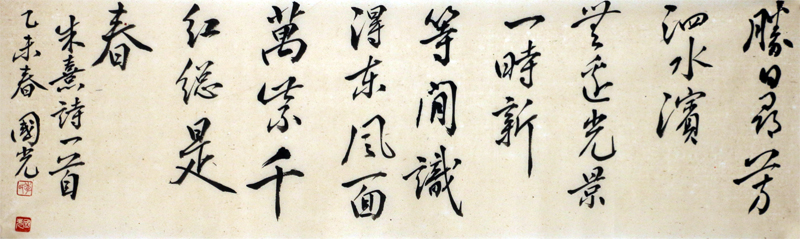 勝日尋芳
泗水濱
無邊光景
一時新
等閒識
得東風面
萬紫千
紅總是
春
朱熹詩一首
乙未春 國光